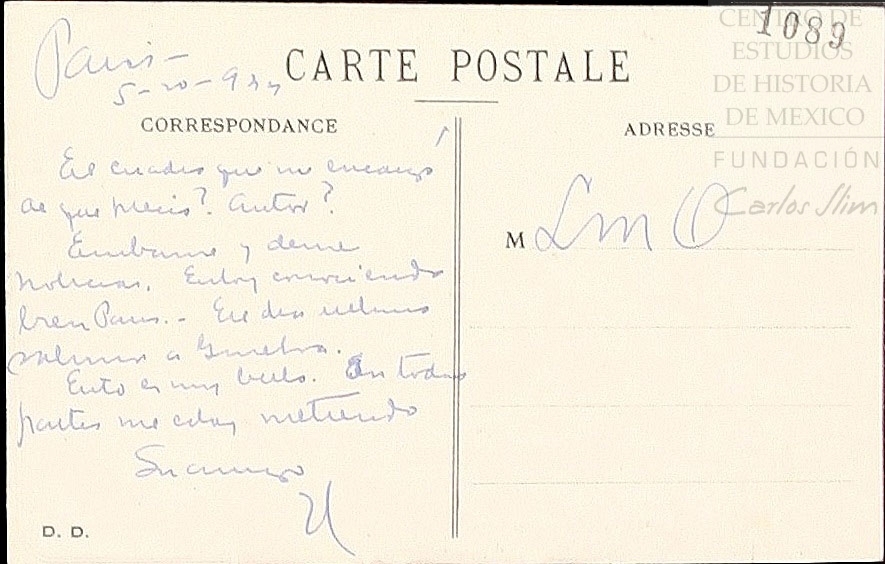 1089
CENTRO DE
ESTUDIOS
DE HISTORIA
DE MEXICO
FUNDACIÓN
Carlos Slim
Paris-
5-20-937
CARTE POSTALE
CORRESPONDANCE
El cuadro que me encargó
de que precio? Autor?
Escribame y deme
noticias. Estoy conociendo
bien Paris.- El dia ultimo
salimos a Ginebra.
Esto es muy bello. En todas
partes me estoy metiendo
Su amigo
D. D.
ADRESSE
M